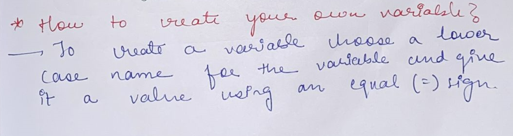 * How to create your own variable?
→ To create a variable choose a lower
case name for the variable and give
it a value using an equal (=) sign.